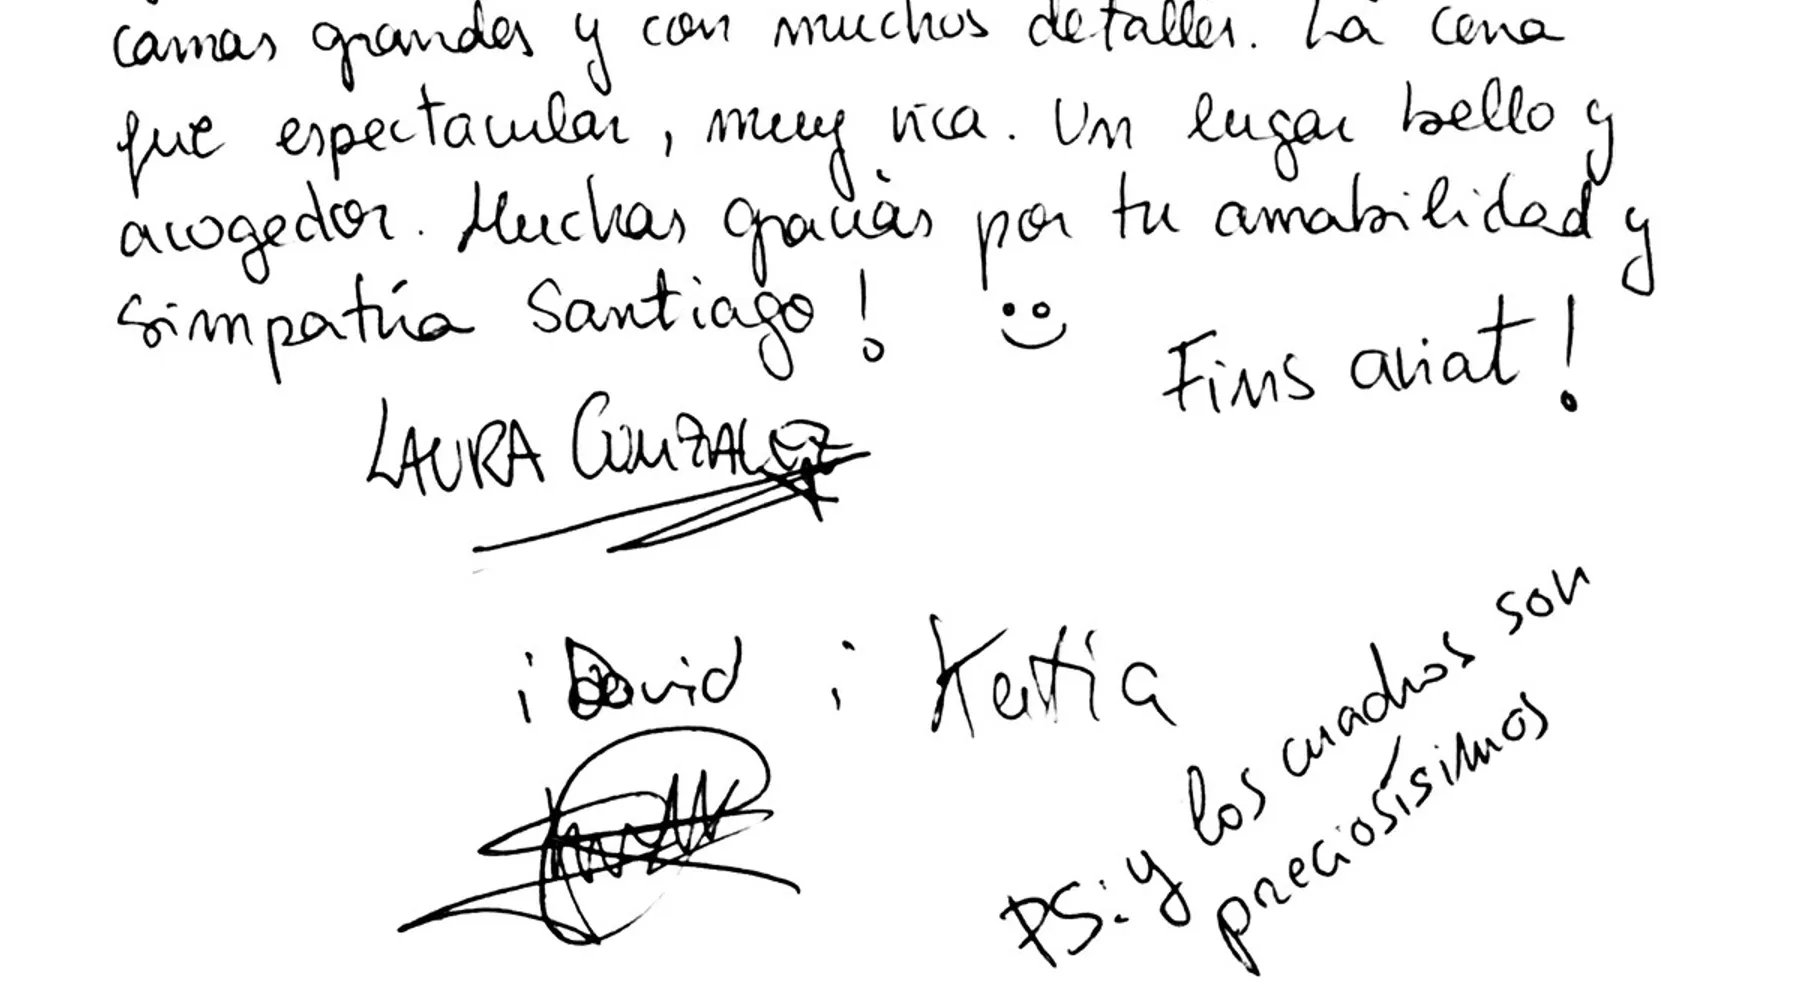 camas grandes y con muchos detalles. La cena
fue espectacular, muy rica. Un lugar bello y
acogedor. Muchas gracias por tu amabilidad y
simpatía Santiago! :)
Fins aviat!
LAURA GONZALEZ
i David i Katia
PS: y los cuadros son
preciosísimos